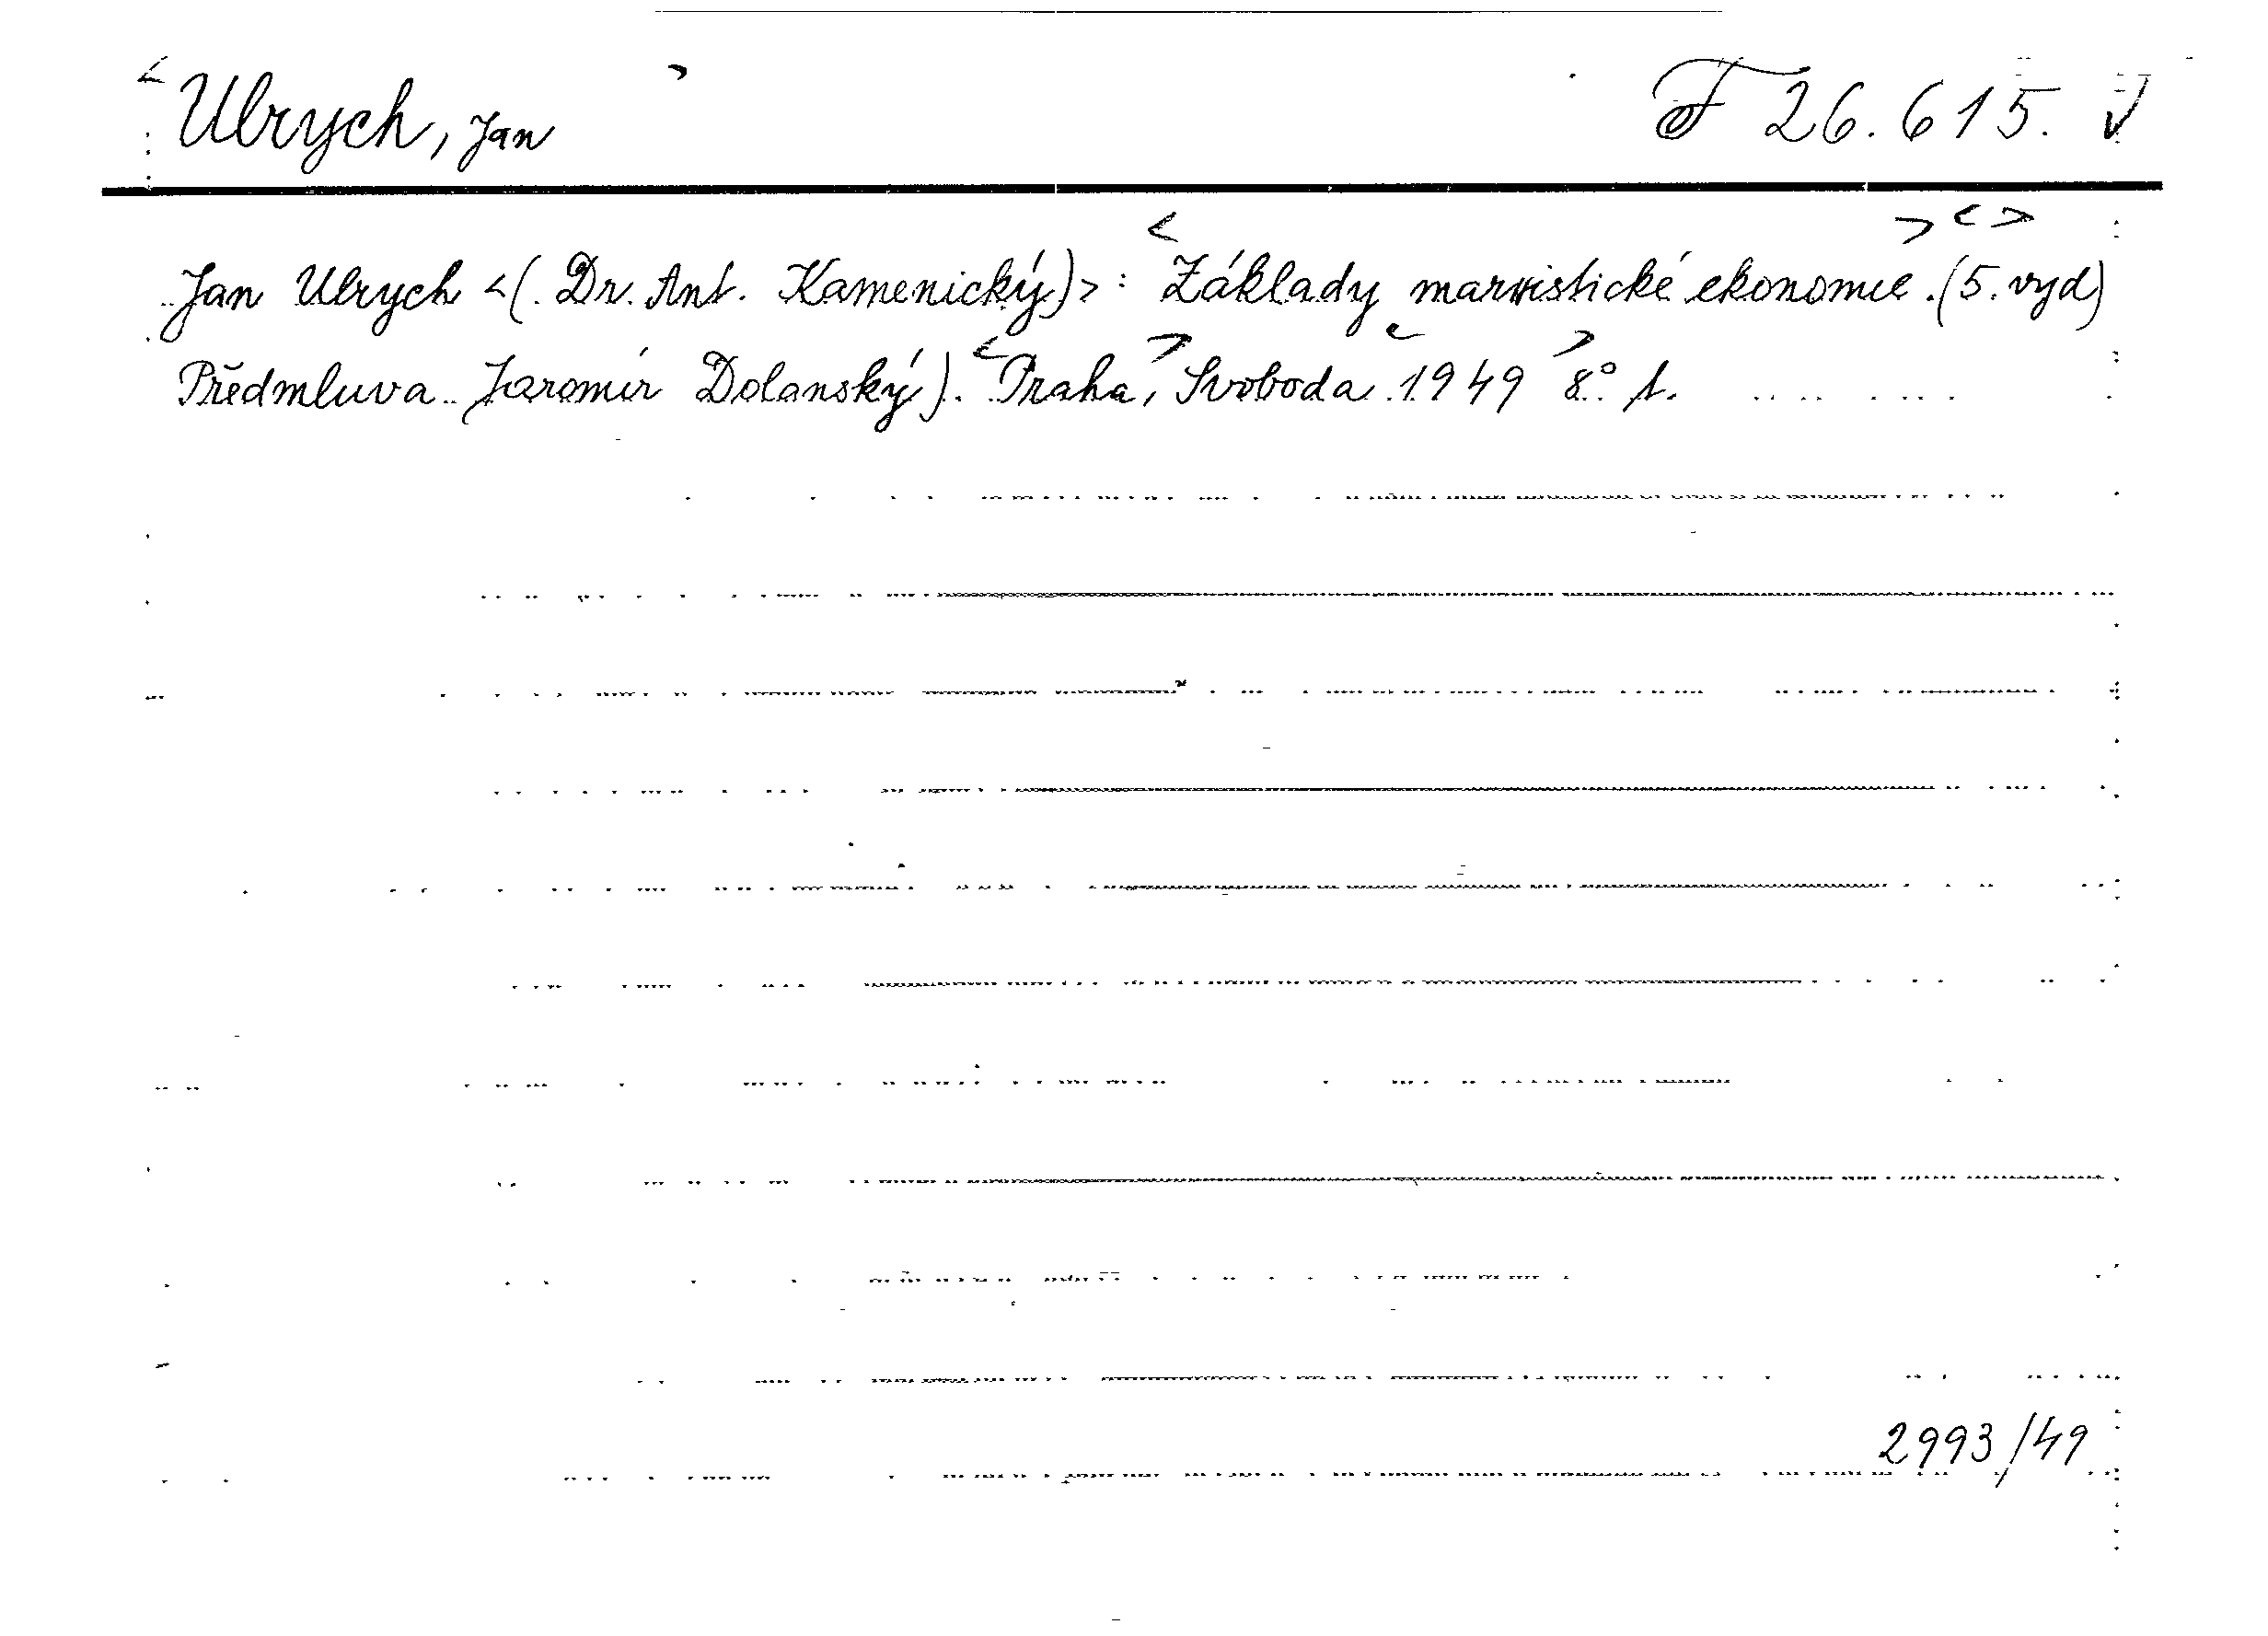 <Ulrych, Jan> F 26.615. V
Jan Ulrych <(Dr. Ant. Kamenický)>: <Základy marxistické ekonomie.> <(5. vyd)>
Předmluva Jaromír Dolanský). <Praha,> Svoboda <1949> 8°
2993/49